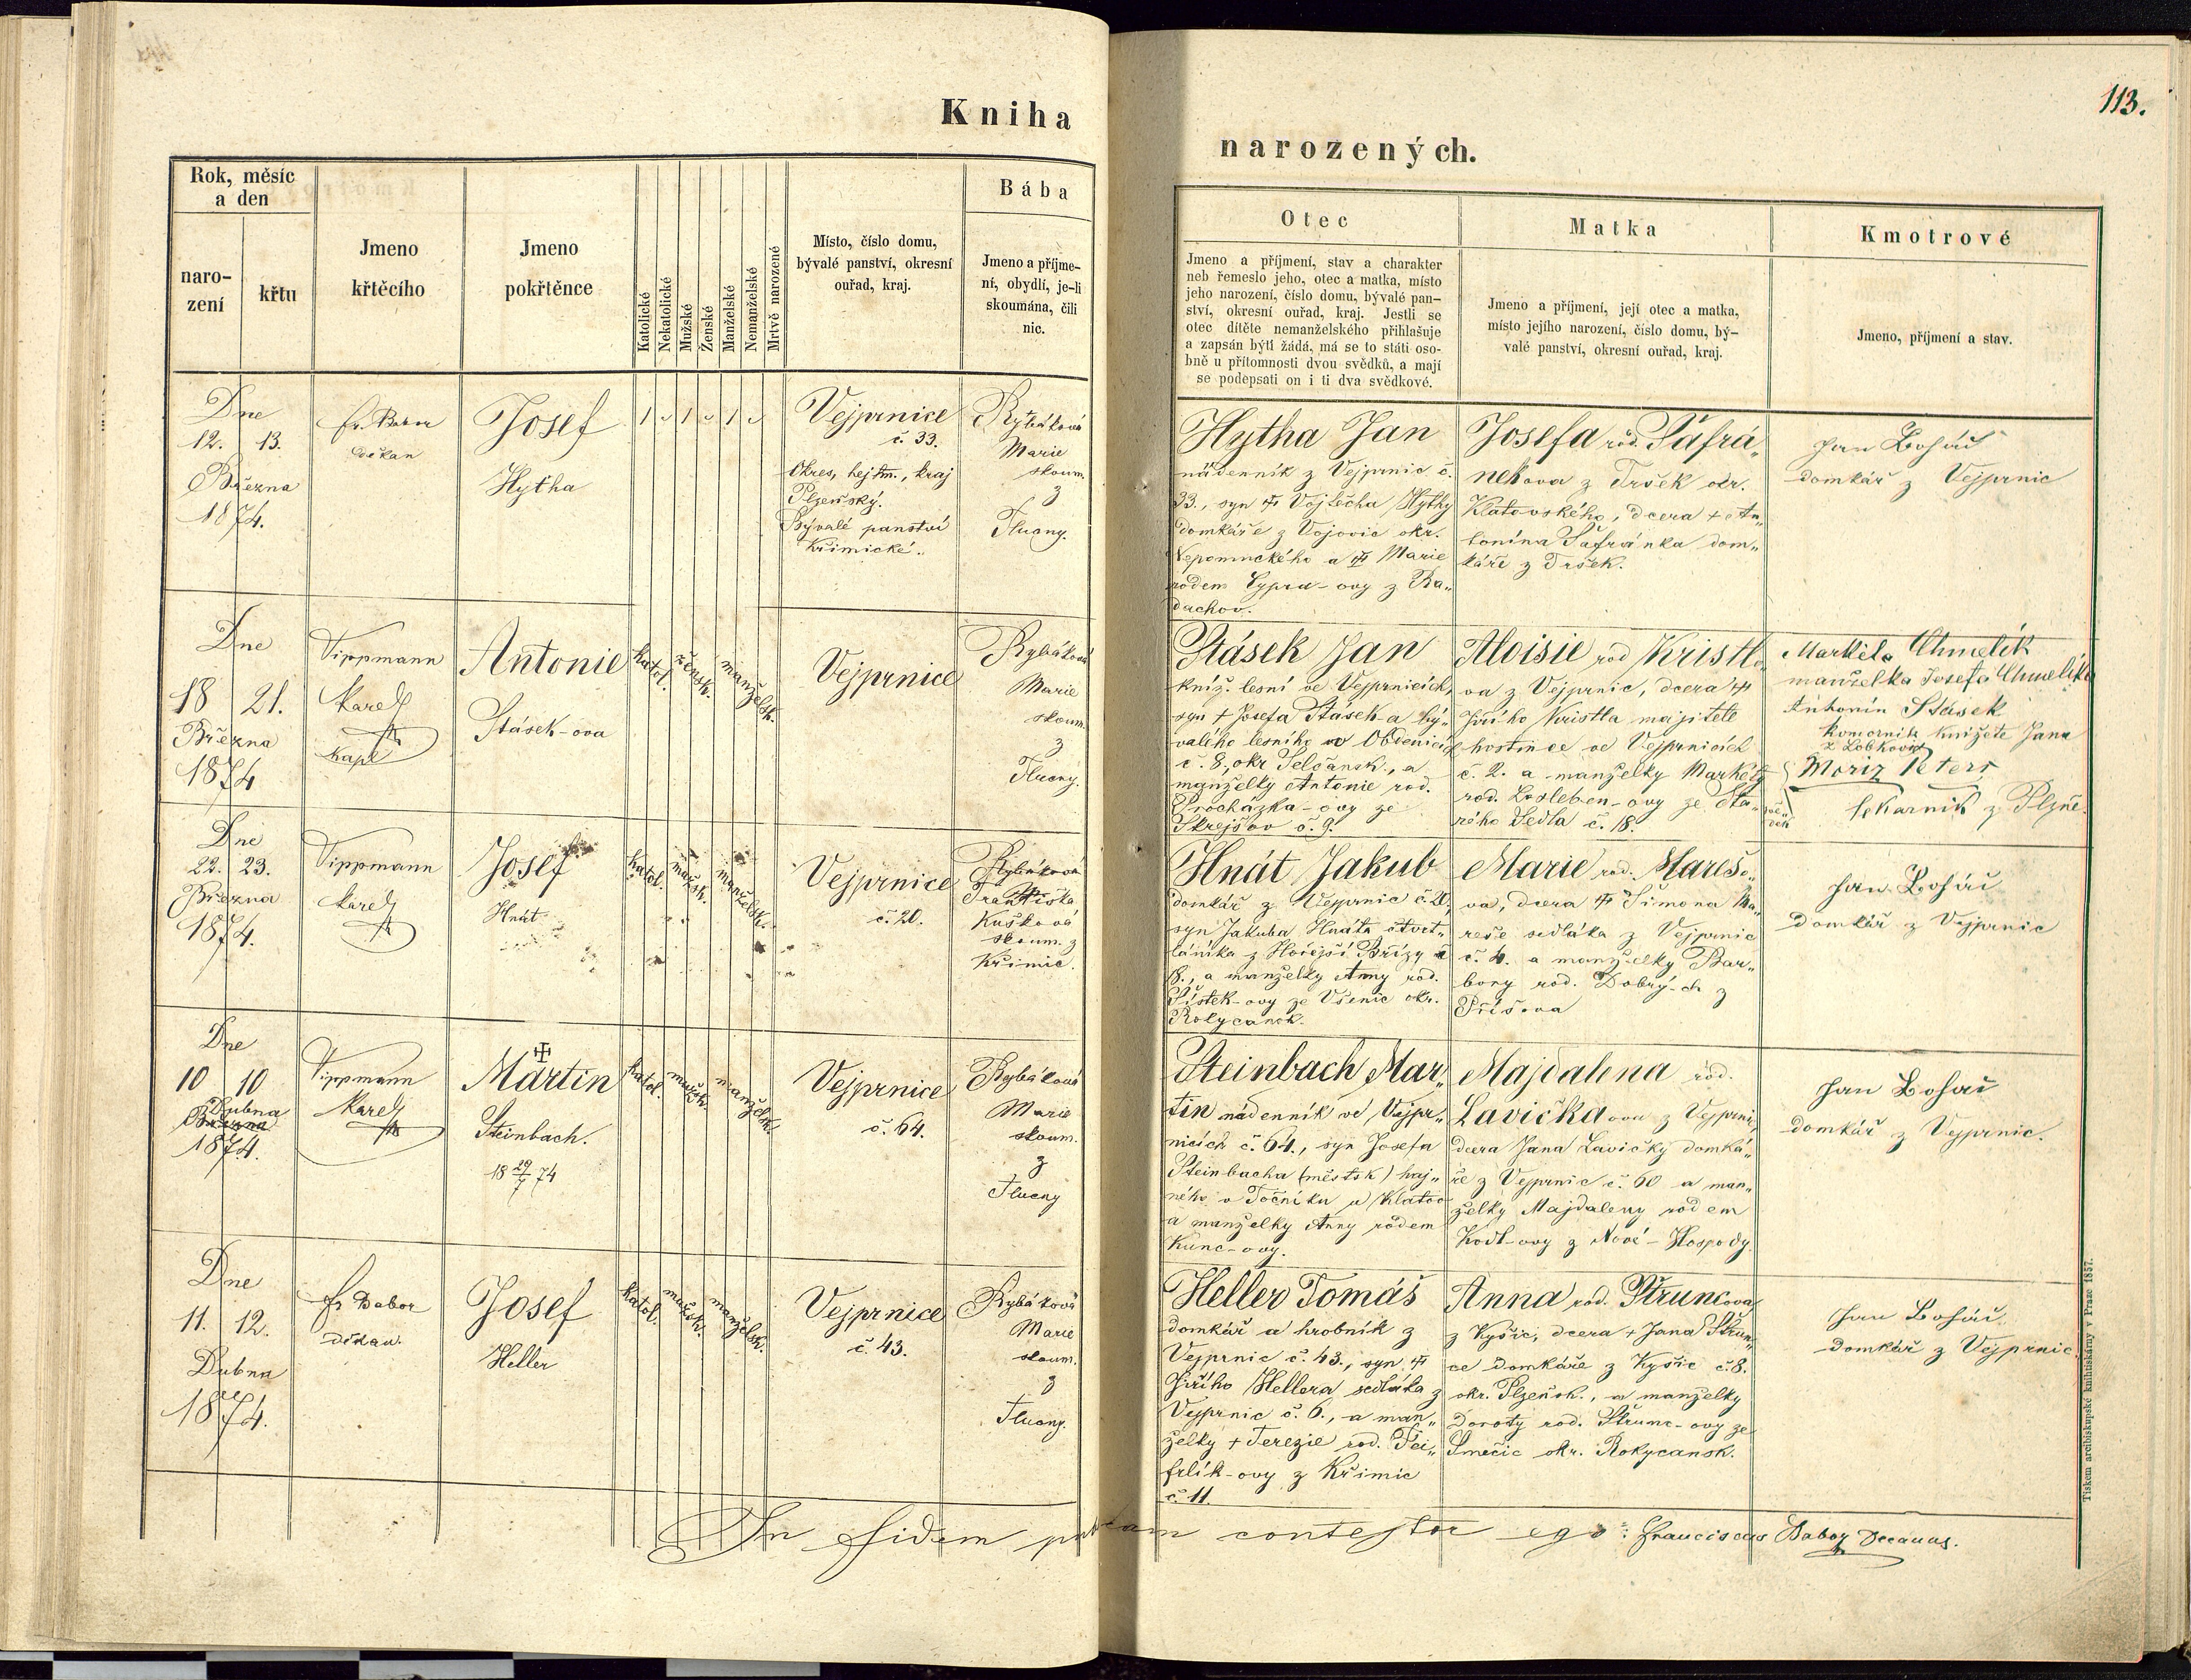 Kniha
narozených.
113.
Rok, měsíc
a den
naro-
zení
křtu
Jmeno
křtěcího
Jmeno
pokřtěnce
Katolické
Nekatolické
Mužské
Ženské
Manželské
Nemanželské
Mrtvě narozené
Místo, číslo domu,
bývalé panství, okresní
ouřad, kraj.
Bába
Jmeno a příjme-
ní, obydlí, je-li
skoumána, čili
nic.
Otec
Jmeno a příjmení, stav a charakter
neb řemeslo jeho, otec a matka, místo
jeho narození, číslo domu, bývalé pan-
ství, okresní ouřad, kraj. Jestli se
otec dítěte nemanželského přihlašuje
a zapsán býti žádá, má se to státi oso-
bně u přítomnosti dvou svědků, a mají
se podepsati on i ti dva svědkové.
Matka
Jmeno a příjmení, její otec a matka,
místo jejího narození, číslo domu, bý-
valé panství, okresní ouřad, kraj.
Kmotrové
Jmeno, příjmení a stav.
Dne
12. 13.
Března
1874.
fr. Babor
děkan
Josef
Hytha
1 1 1
Vejprnice
č. 33.
Okres, hejtm., kraj
Plzeňský.
Bývalé panství
Křimické.
Rybáková
Marie
skoum.
z
Tlucny.
Hytha Jan
nádenník z Vejprnic č.
33., syn Vojtěcha Hythy
domkáře z Vojovic okr.
Nepomuckého a Marie
rodem Cypra-ovy z Ra„
dachov.
Josefa rod. Šafrá„
nekova z Tršek okr.
Klatovského, dcera + An„
tonína Šafránka dom„
káře z Tršek.
Jan Boháč
domkář z Vejprnic
Dne
18 21.
Března
1874
Tippmann
Karel
Kapl
Antonie
Stásek-ova
katol.
žensk.
manželsk.
Vejprnice
Rybáková
Marie
skoum.
z
Tlucny.
Stásek Jan
kníž. lesní ve Vejprnicích,
syn + Josefa Stásek-a bý„
valého lesního v Obdenicích
č. 8., okr Selčansk., a
manželky Antonie rod.
Procházka-ovy ze
Skrejšov č. 9.
Aloisie rod Kristlo„
va z Vejprnic, dcera
Jiřího Kristla majitele
hostince ve Vejprnicích
č. 2. a manželky Markéty
rod. Losleben-ovy ze Sta„
rého Sedla č. 18.
Markéta Chmelík
manželka Josefa Chmelíka
Antonín Stásek
komorník knížete Jana
z Lobkovic
Moriz Peters
lekarník z Plzně.
Dne
22. 23.
Března
1874.
Tippmann
Karel
Josef
Hnát
katol.
mužsk.
manželsk.
Vejprnice
č. 20.
Rybáková
Františka
Kušková
skoum. z
Křimic.
Hnát Jakub
domkář z Vejprnic č. 20,
syn Jakuba Hnáta čtvrt„
láníka z Hořejší Břízy č
8., a manželky Anny rod.
Pístek-ovy ze Všenic okr.
Rokycansk.
Marie rod. Marešo„
va, dcera Šimona Ma„
reše sedláka z Vejprnic
č. 4. a manželky Bar„
bory rod. Dobrý-ch z
Příšova
Jan Boháč
domkář z Vejprnic
Dne
10 10
Dubna
Března
1874.
Tippmann
Karel
Martin
Steinbach.
18 29/7 74
katol.
mužsk.
manželsk.
Vejprnice
č. 64.
Rybáková
Marie
skoum.
z
Tlucny
Steinbach Mar„
tin nádenník ve Vejpr„
nicích č. 64., syn Josefa
Steinbacha (městsk) haj„
ného v Točníku u Klatov
a manželky Anny rodem
Kunc-ovy.
Majdalena rod.
Lavička ova z Vejprnic,
dcera Jana Lavičky domká„
ře z Vejprnic č. 60 a man„
želky Majdaleny rodem
Kodl-ovy z Nové-Hospody.
Jan Bohač
domkář z Vejprnic.
Dne
11. 12.
Dubna
1874.
fr Babor
děkan.
Josef
Heller
katol.
mužsk.
manželsk.
Vejprnice
č. 43.
Rybáková
Marie
skoum.
z
Tlucny.
Heller Tomáš
domkář a hrobník z
Vejprnic č. 43., syn
Jiřího Hellera sedláka z
Vejprnic č. 6., a man„
želky + Terezie rod. Fei„
frlík-ovy z Křimic
č. 11.
Anna rod. Štruncova
z Kyšic, dcera + Jana Štrun„
ce domkáře z Kyšic č. 8.
okr. Plzeňsk., a manželky
Doroty rod. Štrunc-ovy ze
Smečic okr. Rokycansk.
Jan Boháč
domkář z Vejprnic.
In fidem publicam contestor ego: Franciscus Babor Decanus.
Tiskem arcibiskupské knihtiskárny v Praze 1857.